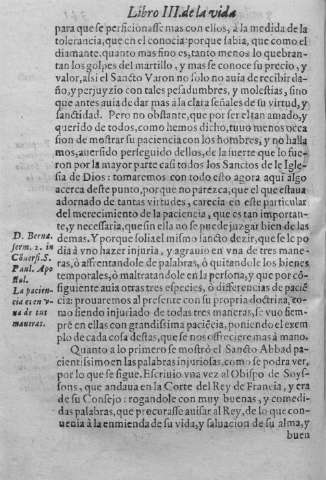 Libro III. de la vida
para que se perficionasse mas con ellos, à la medida de la
tolerancia, que en el conocia porque sabia, que como el
diamante, quanto mas fino es, tanto menos lo quebran-
tan los golpes del martillo, y mas se conoce su precio, y
valor, assi el Sancto Varon no solo no auia de recibir da-
ño, y perjuyzio con tales pesadumbres, y molestias, sino
que antes auia de dar mas à la clara señales de su virtud, y
sanctidad. Pero no obstante, que por ser el tan amado, y
querido de todos, como hemos dicho, tuuo menos occa
sion de mostrar su paciencia con los hombres, y no halla
mos, auer sido perseguido dellos, de la suerte que lo fue-
ron por la mayor parte casi todos los Sanctos de le Igle-
sia de Dios: tomaremos con todo esto agora aqui algo
acerca deste punto, porque no parezca, que el que estaua
adornado de tantas virtudes, carecia en este particular
del merecimiento de la paciencia, que es tan importan-
te, y necessaria, que sin ella no se puede juzgar bien de las
demas. Y porque solia el mismo sancto dezir, que se le po
dià à vno hazer injuria, y agrauio en vna de tres mane-
ras, ò affrentandole de palabras, ò quitandole los bienes
temporales, ò maltratandole en la persona, y que por cō-
siguiente auia otras tres especies, ò differencias de paciē
cia: prouaremos al presente con su propria doctrina, co-
mo siendo injuriado de todas tres maneras, se vuo siem-
prè en ellas con grandissima paciēcia, poniendo el exem-
plo de cada cosa destas, que se nos offreciere mas à mano.
Quanto a lo primero se mostrò el Sancto Abbad pa-
cientissimo en las palabras injuriosas, como se podra ver,
por lo que se sigue. Escriuio vna vez al Obispo de Soys-
sons, que andaua en la Corte del Rey de Francia, y era
de su Consejo: rogandole con muy buenas, y comedi-
das palabras, que procurasse auisar al Rey, de lo que con-
uenia à la enmienda de su vida, y saluacion de su alma, y
buen
D. Berna.
serm. 2. in
Cōuersi. S.
Paul. Apo
stol.
La pacien-
cia es en v-
na de tres
maneras.